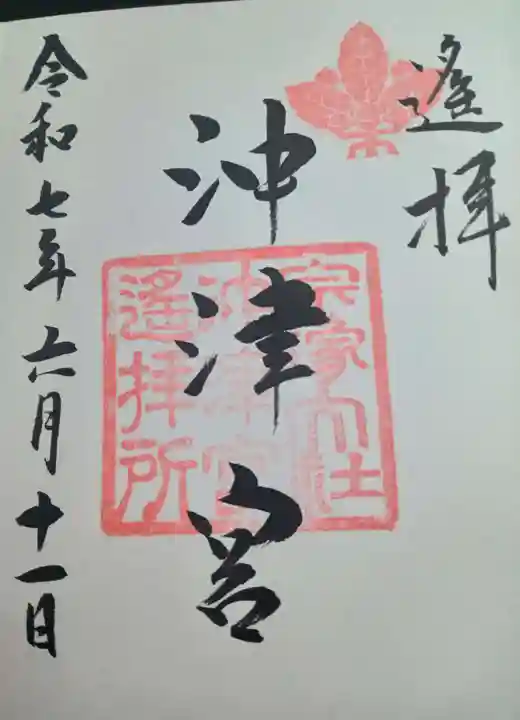 遙拝
沖津宮
令和七年六月十一日
宗像大社
沖津宮
遙拝所